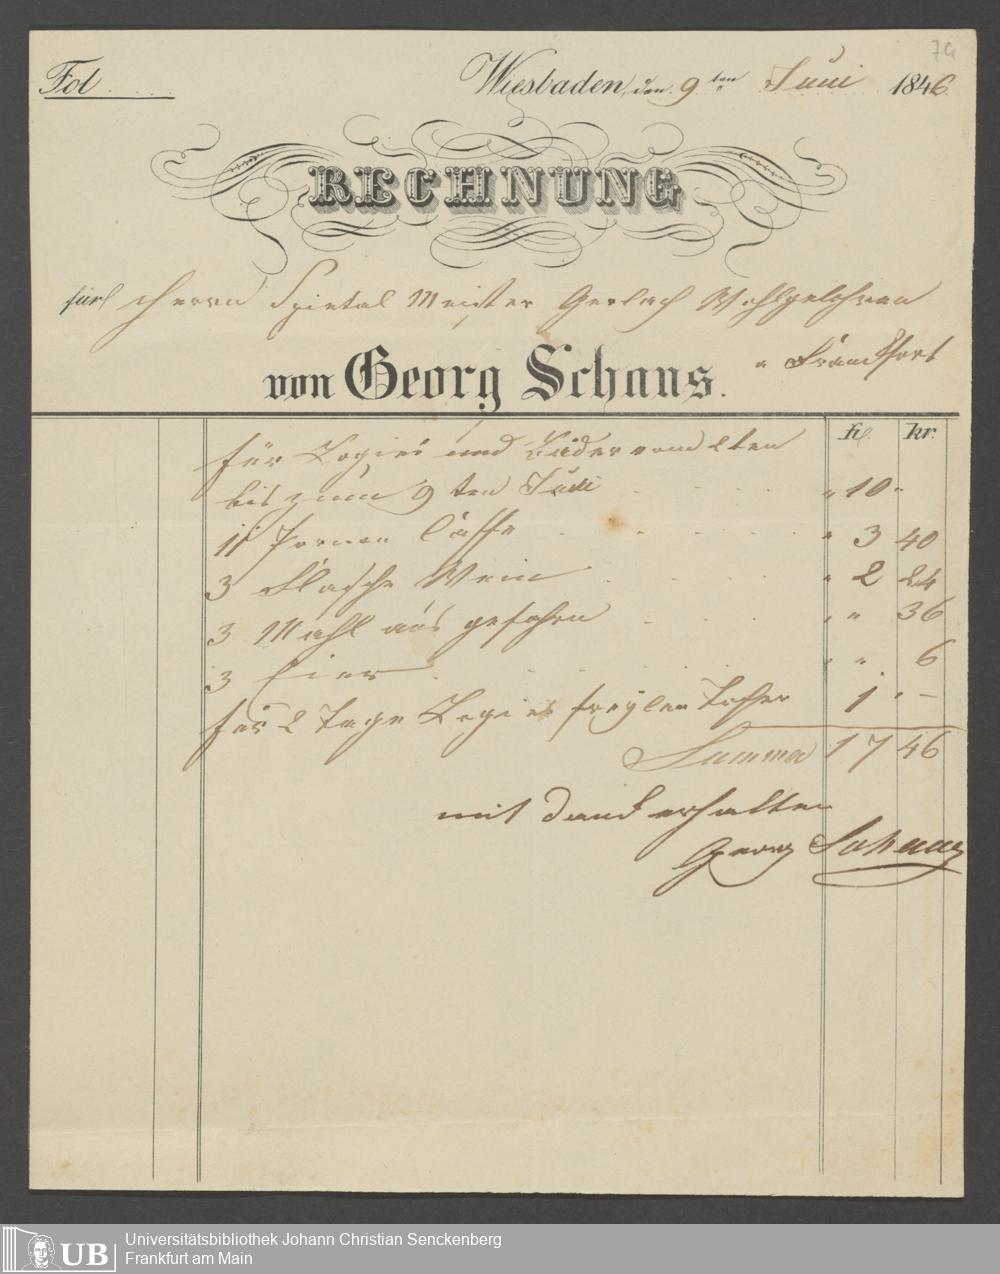 7a
Fol. . . . Wiesbaden, den 9ten Juni 1846.
RECHNUNG
für Herrn Spietal Meister Gerlach Wohlgebohren
von Georg Schaus. a Franckfort
fl. kr.
für Logies und Bäder vom 2ten
bis zum 9ten Juni . . . . " 10 "
11 Pornen Caffe . . . . . " 3 40
3 Flasche Wein . . . . " 2 24
3 Mahl aus gefahren . . . . " " 36
3 Eier . . . . . . " " 6
für 2 Tage Logies 1 " –
Summa 17 46
mit Dank erhalten
Georg Schaus
UB Universitätsbibliothek Johann Christian Senckenberg
Frankfurt am Main